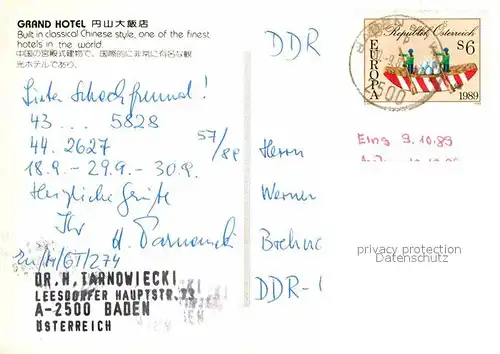 GRAND HOTEL 円山大飯店
Built in classical Chinese style, one of the finest
hotels in the world.
中国の宮殿式建物で、国際的に非常に有名な観
光ホテルであり、
DDR
Republik Österreich
EUROPA
S6
1989
BADEN
2500
Lieber Schachfreund!
43 ... 5828
57/89
44. 2627
18.9. - 29.9. - 30.9.
Herzliche Grüße
Ihr
H. Tarnowiecki
ZU/M/GT/274
DR.H.TARNOWIECKI
LEESDORFER HAUPTSTR.33
A-2500 BADEN
ÖSTERREICH
Eing 9.10.89
Herrn
Werner
DDR-
privacy protection
Datenschutz